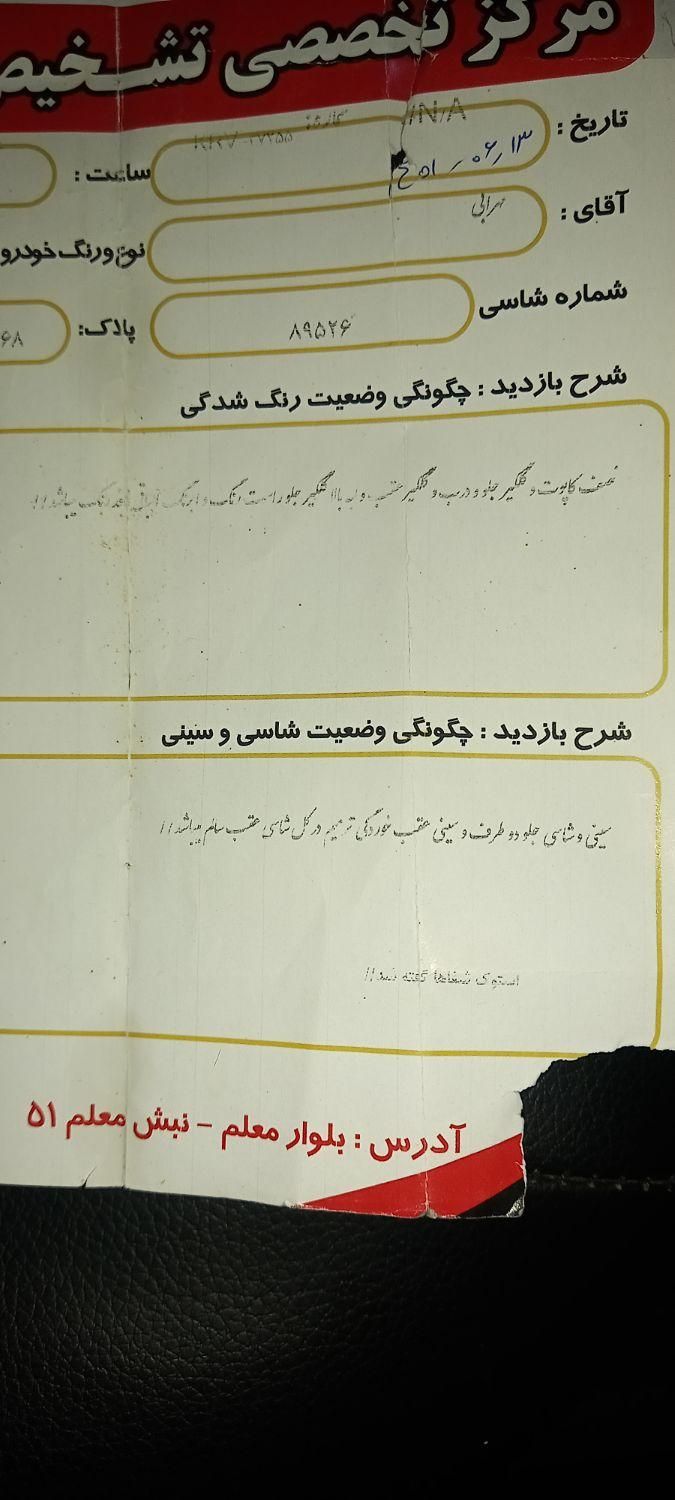 مرکز تخصصی تشخیص
N/A
تاریخ :
۰۶٫۱۳
ساعت :
آقای :
مهرابی
نوع و رنگ خودرو
شماره شاسی
۸۹۵۲۶
پلاک:
۶۸
شرح بازدید : چگونگی وضعیت رنگ شدگی
نصف کاپوت و گلگیر جلو و درب و گلگیر عقب و لبه بالا گلگیر جلو راست رنگ و ابرنگ میباشد!!
شرح بازدید : چگونگی وضعیت شاسی و سینی
سینی و شاسی جلو دو طرف و سینی عقب خوردگی ترمیم در کل شاسی عقب سالم میباشد!!
استوک شفاها گفته شد!!
آدرس : بلوار معلم – نبش معلم ۵۱